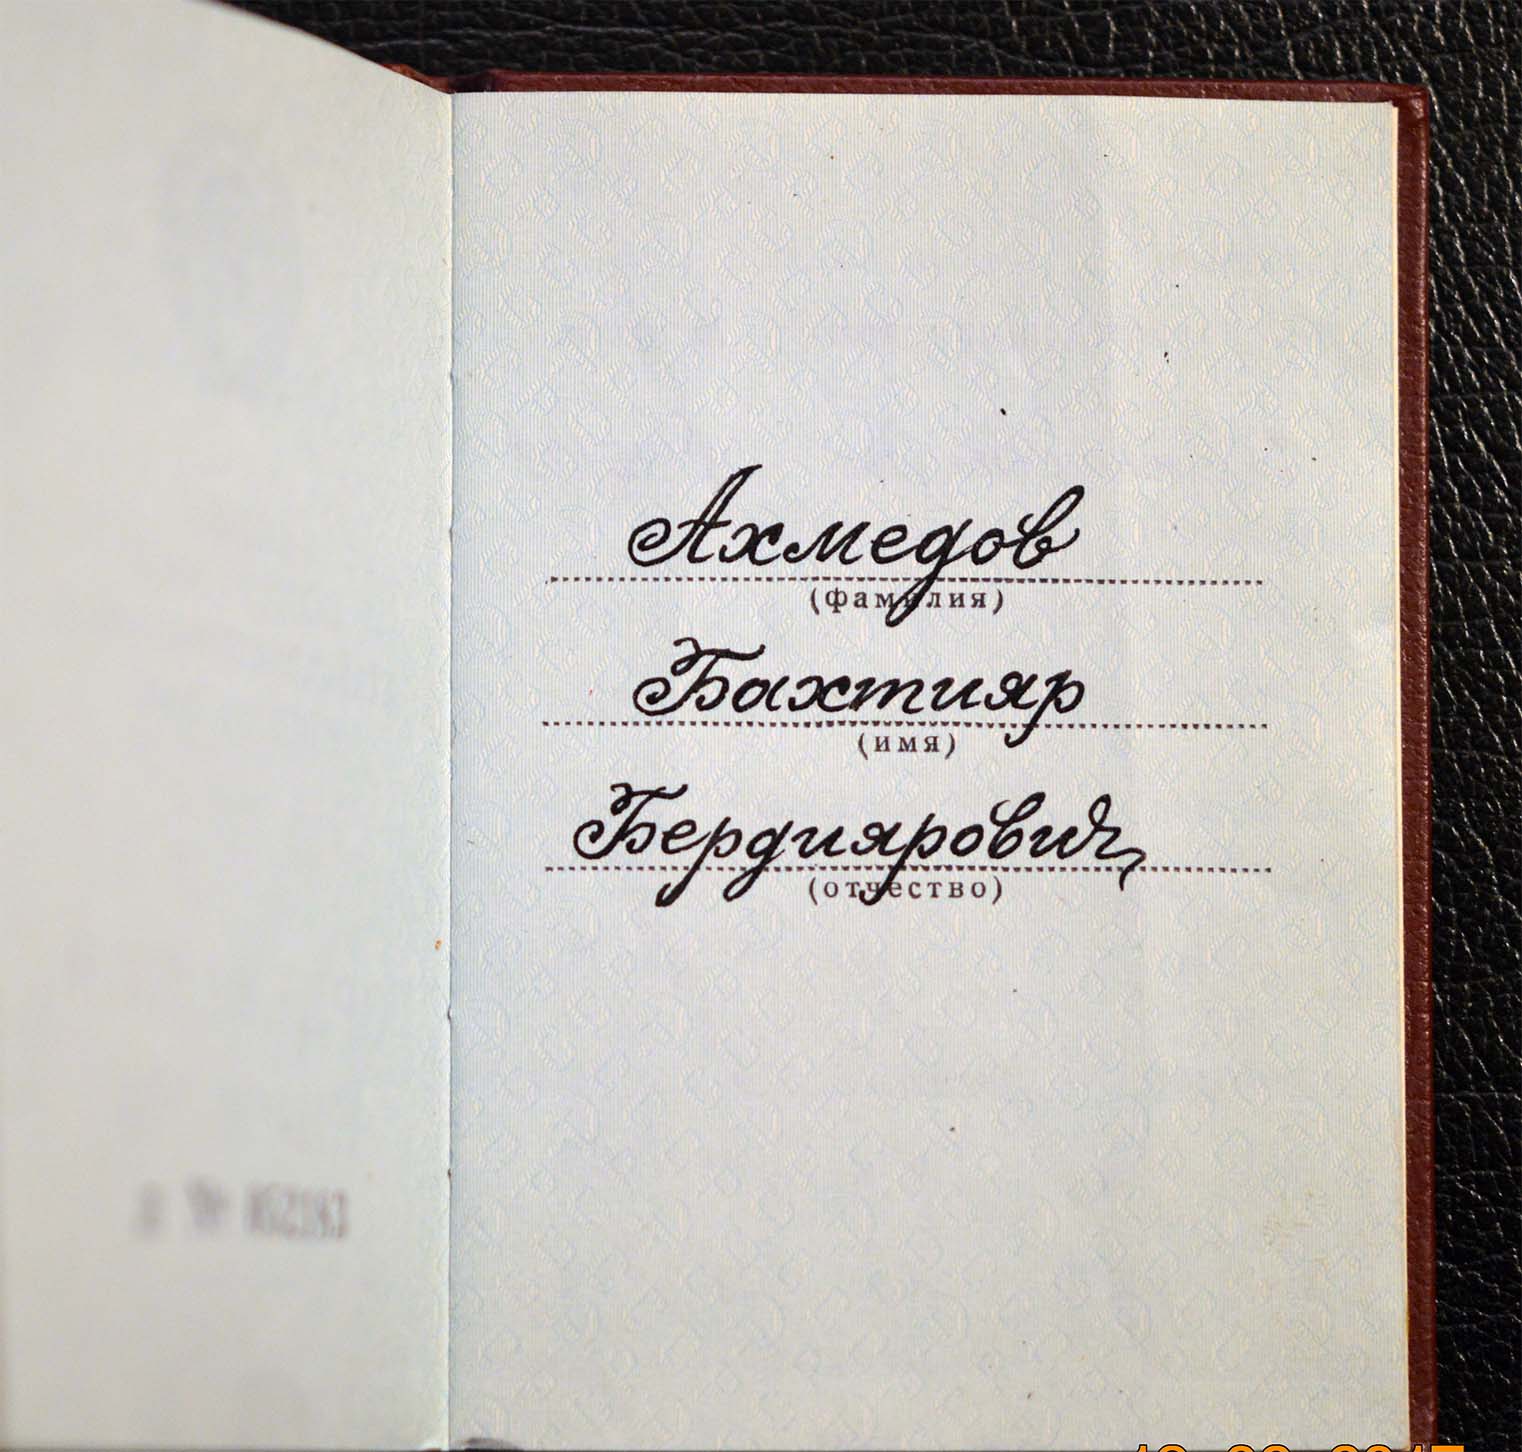 Ахмедов
(фамилия)
Бахтияр
(имя)
Бердиярович
(отчество)